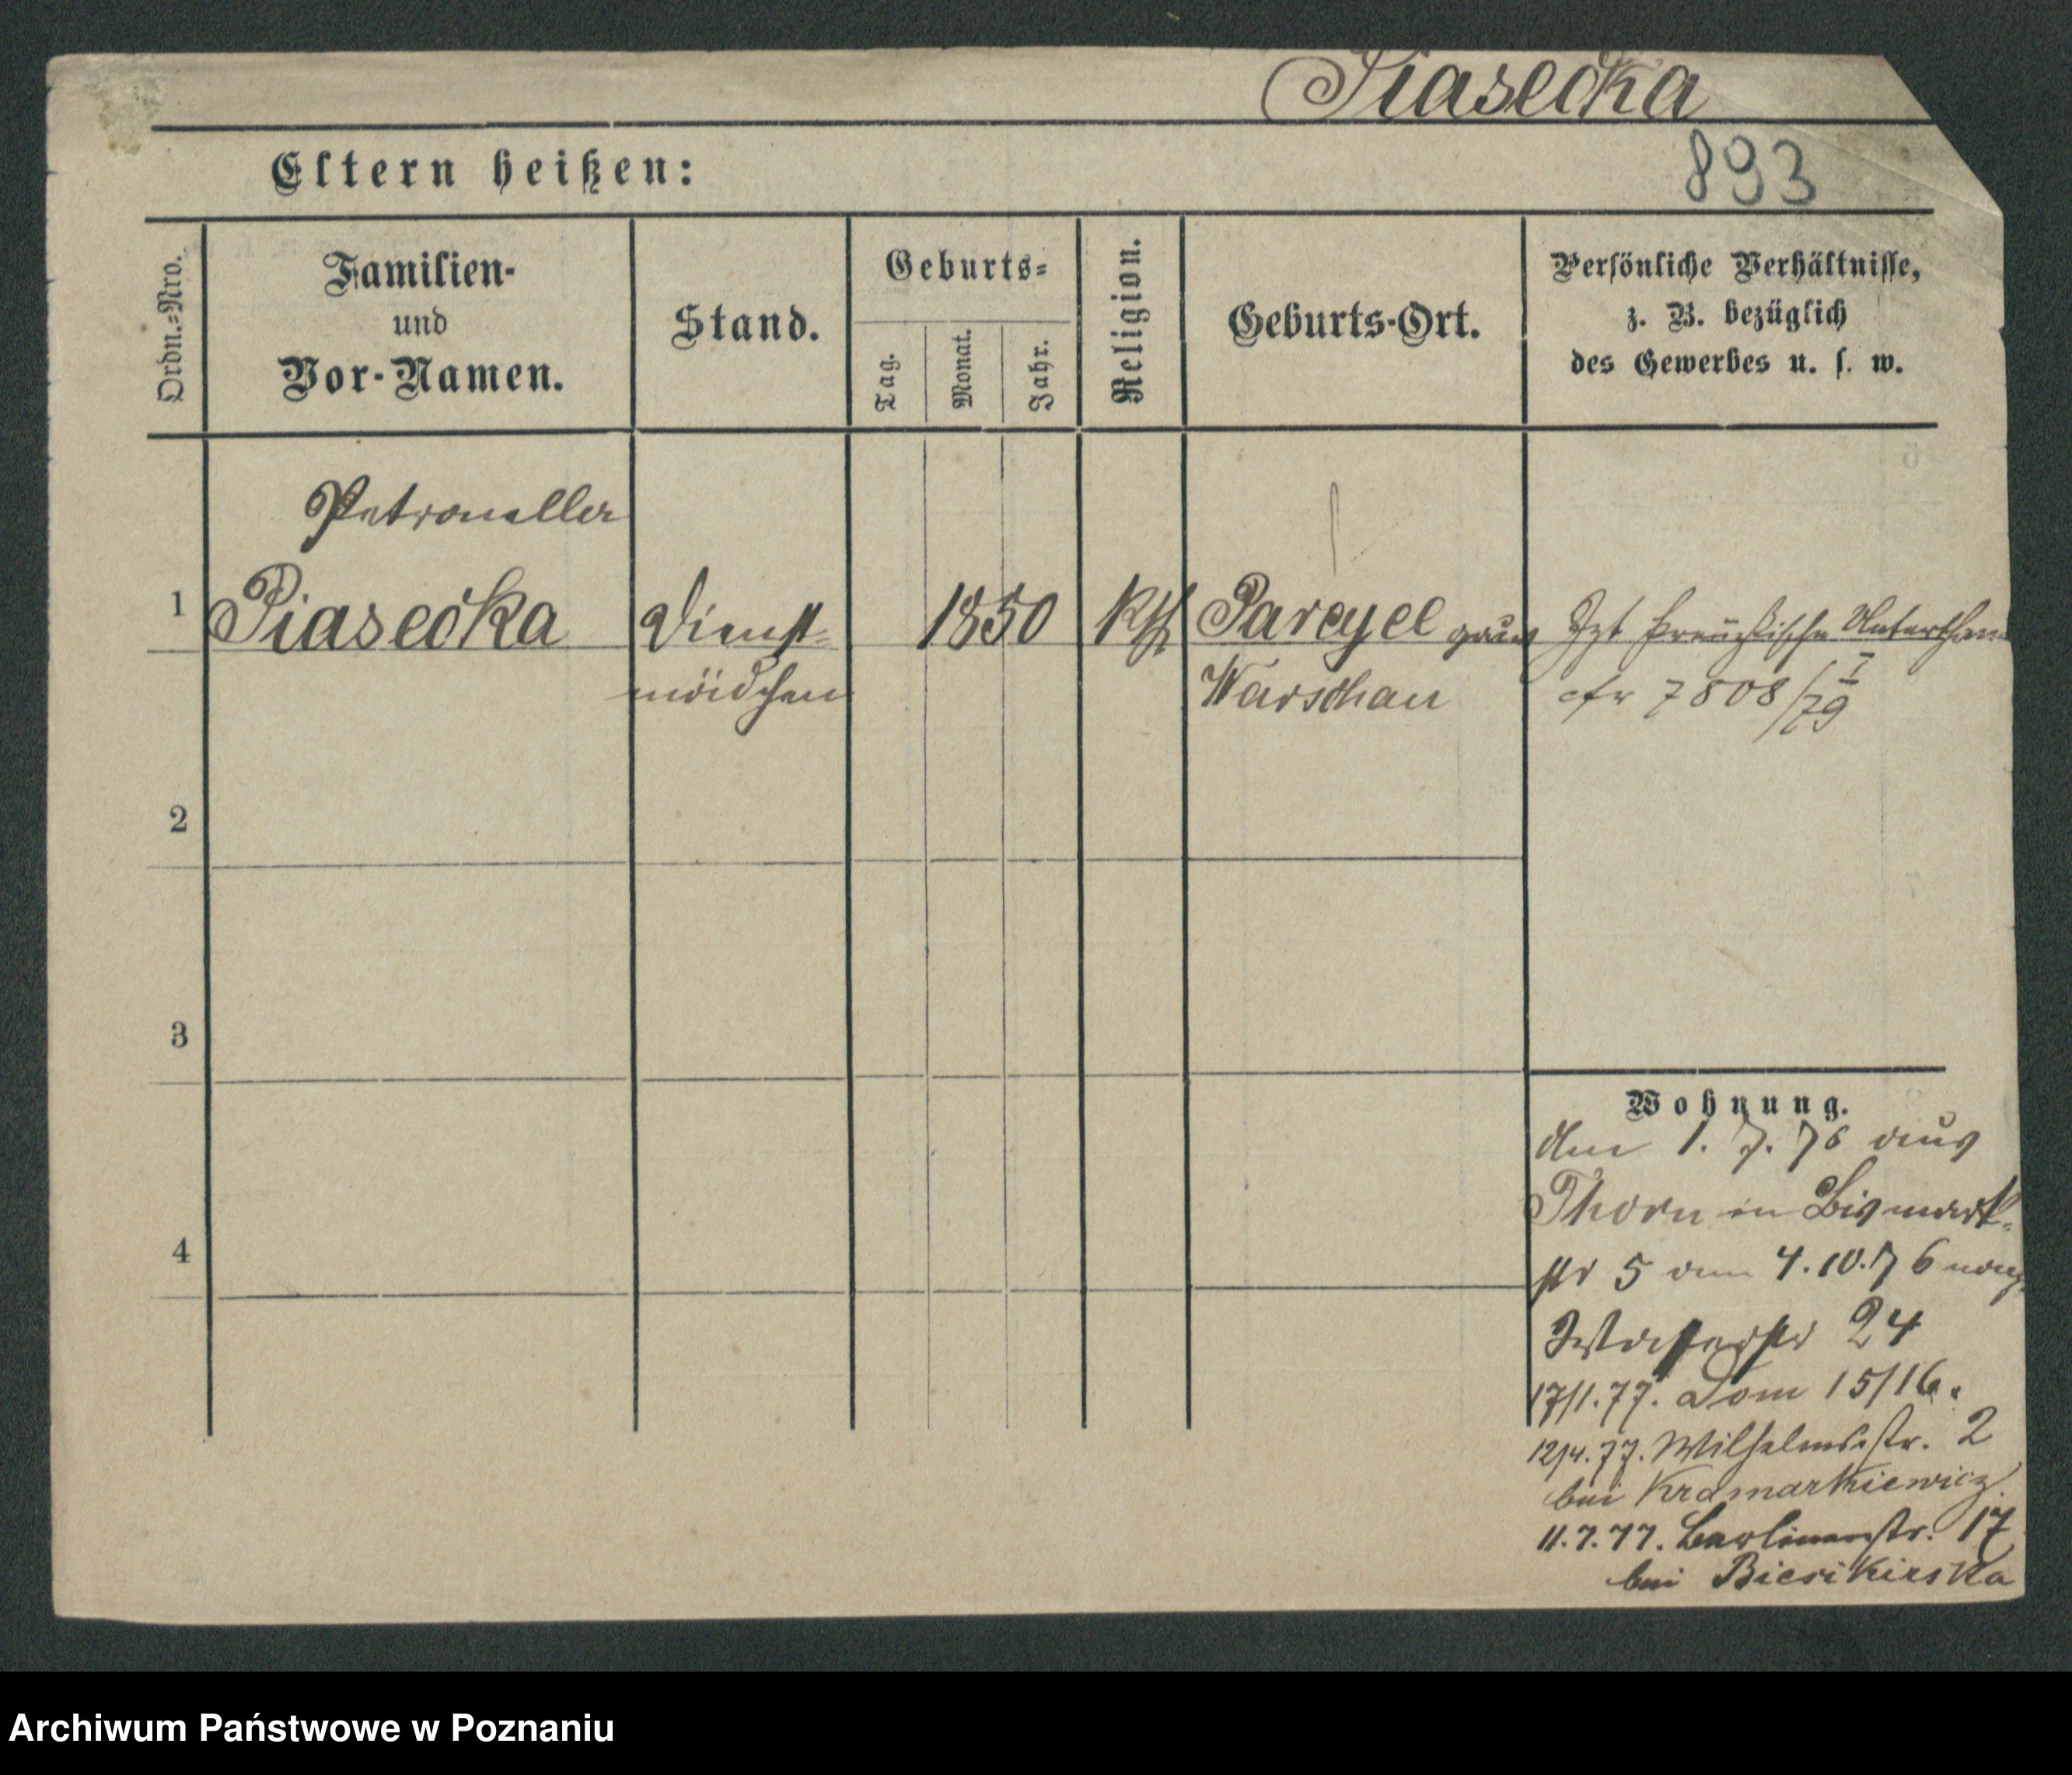 Piasecka
893
Eltern heißen:
Ordn.-Nro.
Familien-
und
Vor-Namen.
Stand.
Geburts-
Tag.
Monat.
Jahr.
Religion.
Geburts-Ort.
Persönliche Verhältnisse,
z. B. bezüglich
des Gewerbes u. s. w.
Petronella
1 Piasecka Dienst- 1850 Kth Pareyel Jzt preußische Unterthan
mädchen Warschau cfr 7808/I/79
2
3
4
Wohnung.
den 1. 7. 76 aus
Thorn in Bismark-
str 5 den 4.10.76 nach
Wasserstr 24
17/1.77. Dom 15/16.
12/4.77. Wilhelmsstr. 2
bei Kramarkiewicz
11.7.77. Berlinerstr. 17
bei
Archiwum Państwowe w Poznaniu